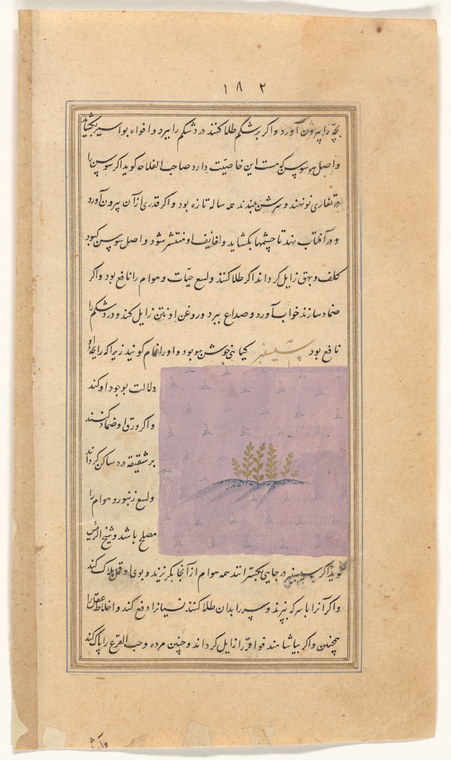 ۱۸۲
بچه را بیرون آورد و اکر بر شکم طلا کنند درد شکم را ببرد و افواه بواسیر بکشاید
و اصل هر سوسن که هست این خاصیّت دارد صاحب الفلاحه کوید اکر سوسن را
در تغاری نو نهند و سرش ببندند همه ساله تازه بود و اکر قدری از آن بیرون آورد
و در آفتاب بنهد تا چشمها بکشاید و منتشر شود و اصل سوسن کبود
کلف و بهق زایل کرداند اکر طلا کنند و لسع حیّات و هوام را نافع بود و اکر
ضماد سازند خواب آورد و صداع ببرد و روغن او زایل کند و درد شکم را
نافع بود سیسنبر کیاهی خوش بو بود و او را نمّام کویند زیرا که رایحهٔ او
دلالت بوجود او کند
و اکر ورق او ضماد کنند
بر شقیقه درد ساکن کرداند
و لسع زنبور و هوام را
مصلح باشد و شیخ الرئیس
کوید اکر سیسنبر در جایی بکسترانند همه هوام از آنجا بکریزند و بوی او قمل هلاک کند
و اکر آنرا با سرکه بپزند و سر بدان طلا کنند نسیانرا دفع کند و اختلاط عقل را
همچنین و اکر بیاشامند فواق را زایل کرداند و جنین مرده و حب القرع را پاک کند